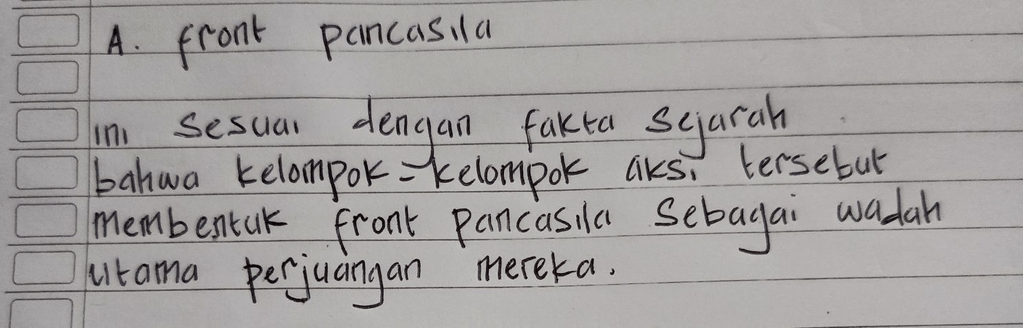 A. front pancasila
ini sesuai dengan fakta sejarah
bahwa kelompok=kelompok aksi tersebut
membentuk front pancasila sebagai wadah
utama perjuangan mereka.